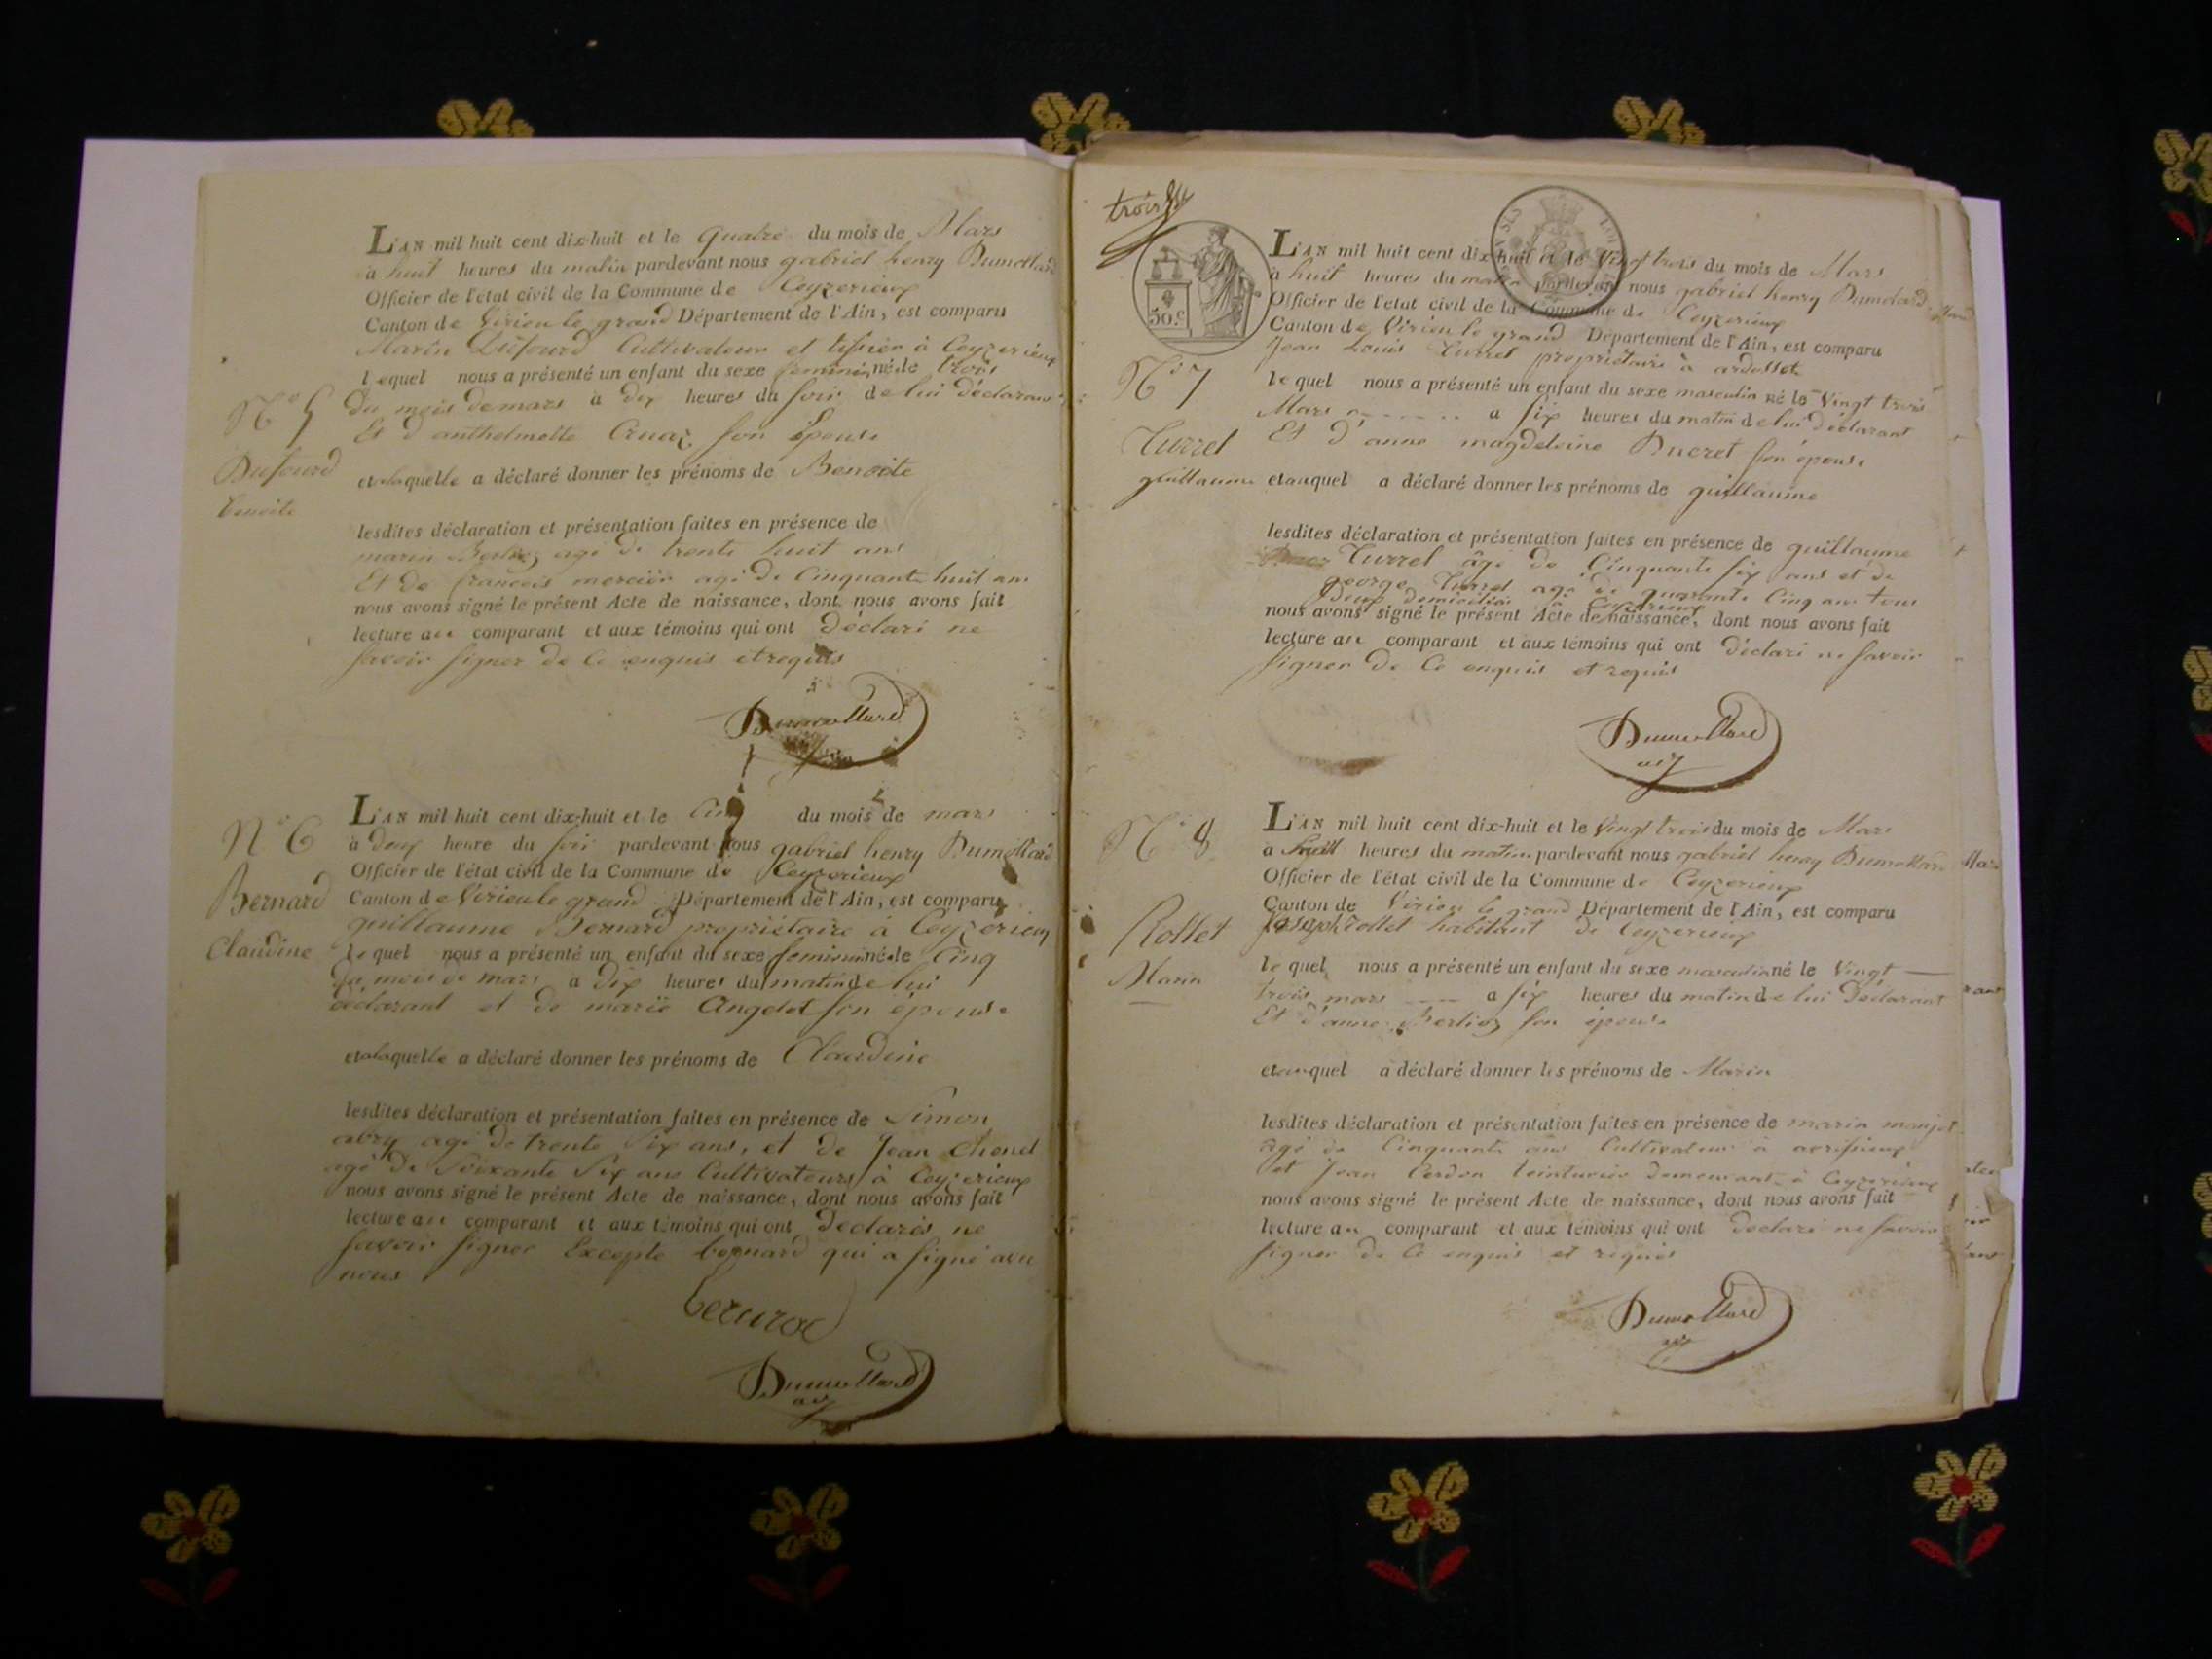 L'AN mil huit cent dix-huit et le quatre du mois de Mars
à huit heures du matin pardevant nous gabriel henry Dumollard
Officier de l'état civil de la Commune de Ceyzerieux
Canton de Virieu le grand Département de l'Ain, est comparu
Marin Dufourd Cultivateur et tissier à Ceyzerieux
lequel nous a présenté un enfant du sexe feminin né le trois
N° 5
du mois de mars à dix heures du soir de lui déclarant
Et d'anthelmette Cruaz son Épouse
Dufourd
benoite
et a laquelle a déclaré donner les prénoms de Benoite
lesdites déclaration et présentation faites en présence de
marin Berlioz agé de trente huit ans
Et de françois mercier agé de Cinquante huit ans
nous avons signé le présent Acte de naissance, dont nous avons fait
lecture au comparant et aux témoins qui ont déclaré ne
savoir signer de ce enquis et requis
Dumollard
L'AN mil huit cent dix-huit et le Cinq du mois de mars
N° 6
à deux heure du soir pardevant nous gabriel henry Dumollard
Officier de l'état civil de la Commune de Ceyzerieux
Bernard
Claudine
Canton de Virieu le grand Département de l'Ain, est comparu
guillaume Bernard propriétaire à Ceyzerieux
lequel nous a présenté un enfant du sexe feminin né le Cinq
du mois de mars à dix heures du matin de lui
déclarant et de marie Angelot son épouse
et a laquelle a déclaré donner les prénoms de Claudine
lesdites déclaration et présentation faites en présence de Simon
abry agé de trente Six ans, et de Jean
agé de Soixante Six ans Cultivateurs à Ceyzerieux
nous avons signé le présent Acte de naissance, dont nous avons fait
lecture au comparant et aux témoins qui ont Declarés ne
savoir signer Excepté bernard qui a signé avec
nous
bernard
Dumollard
adj
trois
50.c
L'AN mil huit cent dix-huit et le Vingt trois du mois de Mars
à huit heures du matin pardevant nous gabriel henry Dumolard
Officier de l'état civil de la Commune de Ceyzerieux
Canton de Virieu le grand Département de l'Ain, est comparu
Jean Louis Turrel propriétaire à ardosset
N° 7
lequel nous a présenté un enfant du sexe masculin né le Vingt trois
Mars à six heures du matin de lui déclarant
Et d'anne magdeleine Ducret son épouse
Turrel
guillaume
et auquel a déclaré donner les prénoms de guillaume
lesdites déclaration et présentation faites en présence de guillaume
Turrel âgé de Cinquante six ans et de
george Turrel agé de quarante Cinq ans tous
deux domiciliés à Ceyzerieux
nous avons signé le présent Acte de naissance, dont nous avons fait
lecture au comparant et aux témoins qui ont déclaré ne savoir
signer de Ce enquis et requis
Dumollard
adj
L'AN mil huit cent dix-huit et le Vingt trois du mois de Mars
N° 8
à huit heures du matin pardevant nous gabriel henry Dumollard
Officier de l'état civil de la Commune de Ceyzerieux
Canton de Virieu le grand Département de l'Ain, est comparu
Joseph rollet habitant de Ceyzerieux
Rollet
Marin
lequel nous a présenté un enfant du sexe masculin né le Vingt
trois mars à six heures du matin de lui Déclarant
Et d'anne Berlioz son épouse
et auquel a déclaré donner les prénoms de Marin
lesdites déclaration et présentation faites en présence de marin manjot
agé de Cinquante ans Cultivateur à
et Jean Cerdon teinturier demeurant à Ceyzerieux
nous avons signé le présent Acte de naissance, dont nous avons fait
lecture au comparant et aux témoins qui ont déclaré ne savoir
signer de Ce enquis et requis
Dumollard
adj